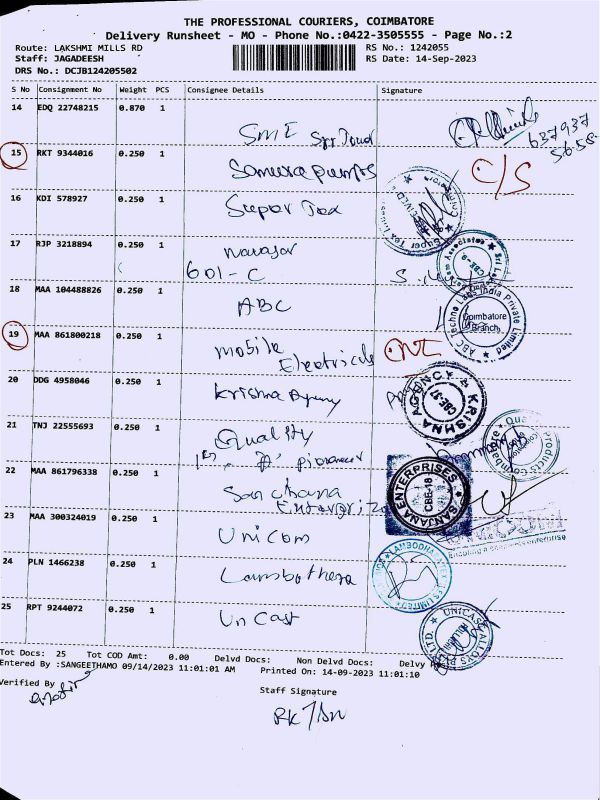 THE PROFESSIONAL COURIERS, COIMBATORE
Delivery Runsheet - MO - Phone No.:0422-3505555 - Page No.:2
Route: LAKSHMI MILLS RD RS No.: 1242055
Staff: JAGADEESH RS Date: 14-Sep-2023
DRS No.: DCJB124205502
S No Consignment No Weight PCS Consignee Details Signature
14 EDQ 22748215 0.870 1
SME
637937
5658
15 RKT 9344016 0.250 1
C/S
16 KDI 578927 0.250 1
Super Tex
17 RJP 3218894 0.250 1
601-C
18 MAA 104488826 0.250 1
ABC
ABC Techno Labs India Private Limited
Coimbatore Branch
19 MAA 861800218 0.250 1
mobile
Electricals
20 DDG 4958046 0.250 1
Krishna Agency
KRISHNA AGENC
CBE-37
21 TNJ 22555693 0.250 1
Quality
22 MAA 861796338 0.250 1
Sanchana
SANJANA ENTERPRISES
CBE-18
23 MAA 300324019 0.250 1
Unicom
24 PLN 1466238 0.250 1
Lambothera
25 RPT 9244072 0.250 1
Uncast
Tot Docs: 25 Tot COD Amt: 0.00 Delvd Docs: Non Delvd Docs: Delvy
Entered By :SANGEETHAMO 09/14/2023 11:01:01 AM Printed On: 14-09-2023 11:01:10
Verified By
Staff Signature